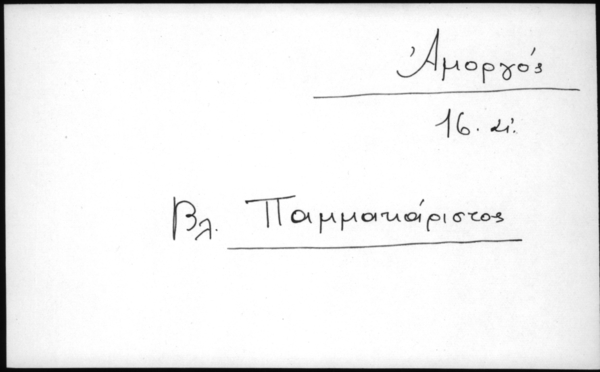 Ἀμοργός
16. αἰ.
Βλ. Παμμακάριστος